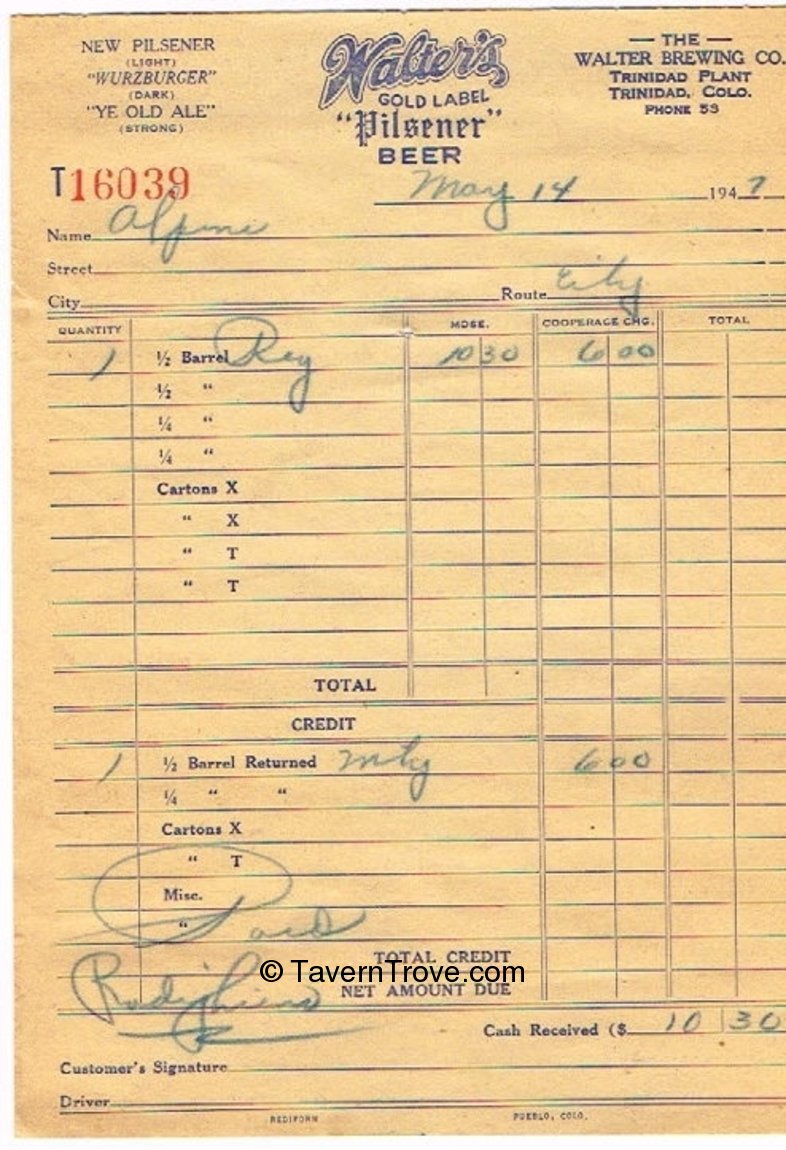 NEW PILSENER
(LIGHT)
"WURZBURGER"
(DARK)
"YE OLD ALE"
(STRONG)
Walter's
GOLD LABEL
"Pilsener"
BEER
— THE —
WALTER BREWING CO.
TRINIDAD PLANT
TRINIDAD, COLO.
PHONE 53
T16039
May 14 1947
Name Alpine
Street
City Route City
QUANTITY MDSE. COOPERAGE CHG. TOTAL
1 ½ Barrel Reg 10 30 6 00
½ "
¼ "
¼ "
Cartons X
" X
" T
" T
TOTAL
CREDIT
1 ½ Barrel Returned Mty 6 00
¼ " "
Cartons X
" T
Misc.
" Paid
TOTAL CREDIT
© TavernTrove.com
NET AMOUNT DUE
Cash Received ($ 10 30
Customer's Signature
Driver
REDIFORM PUEBLO, COLO.